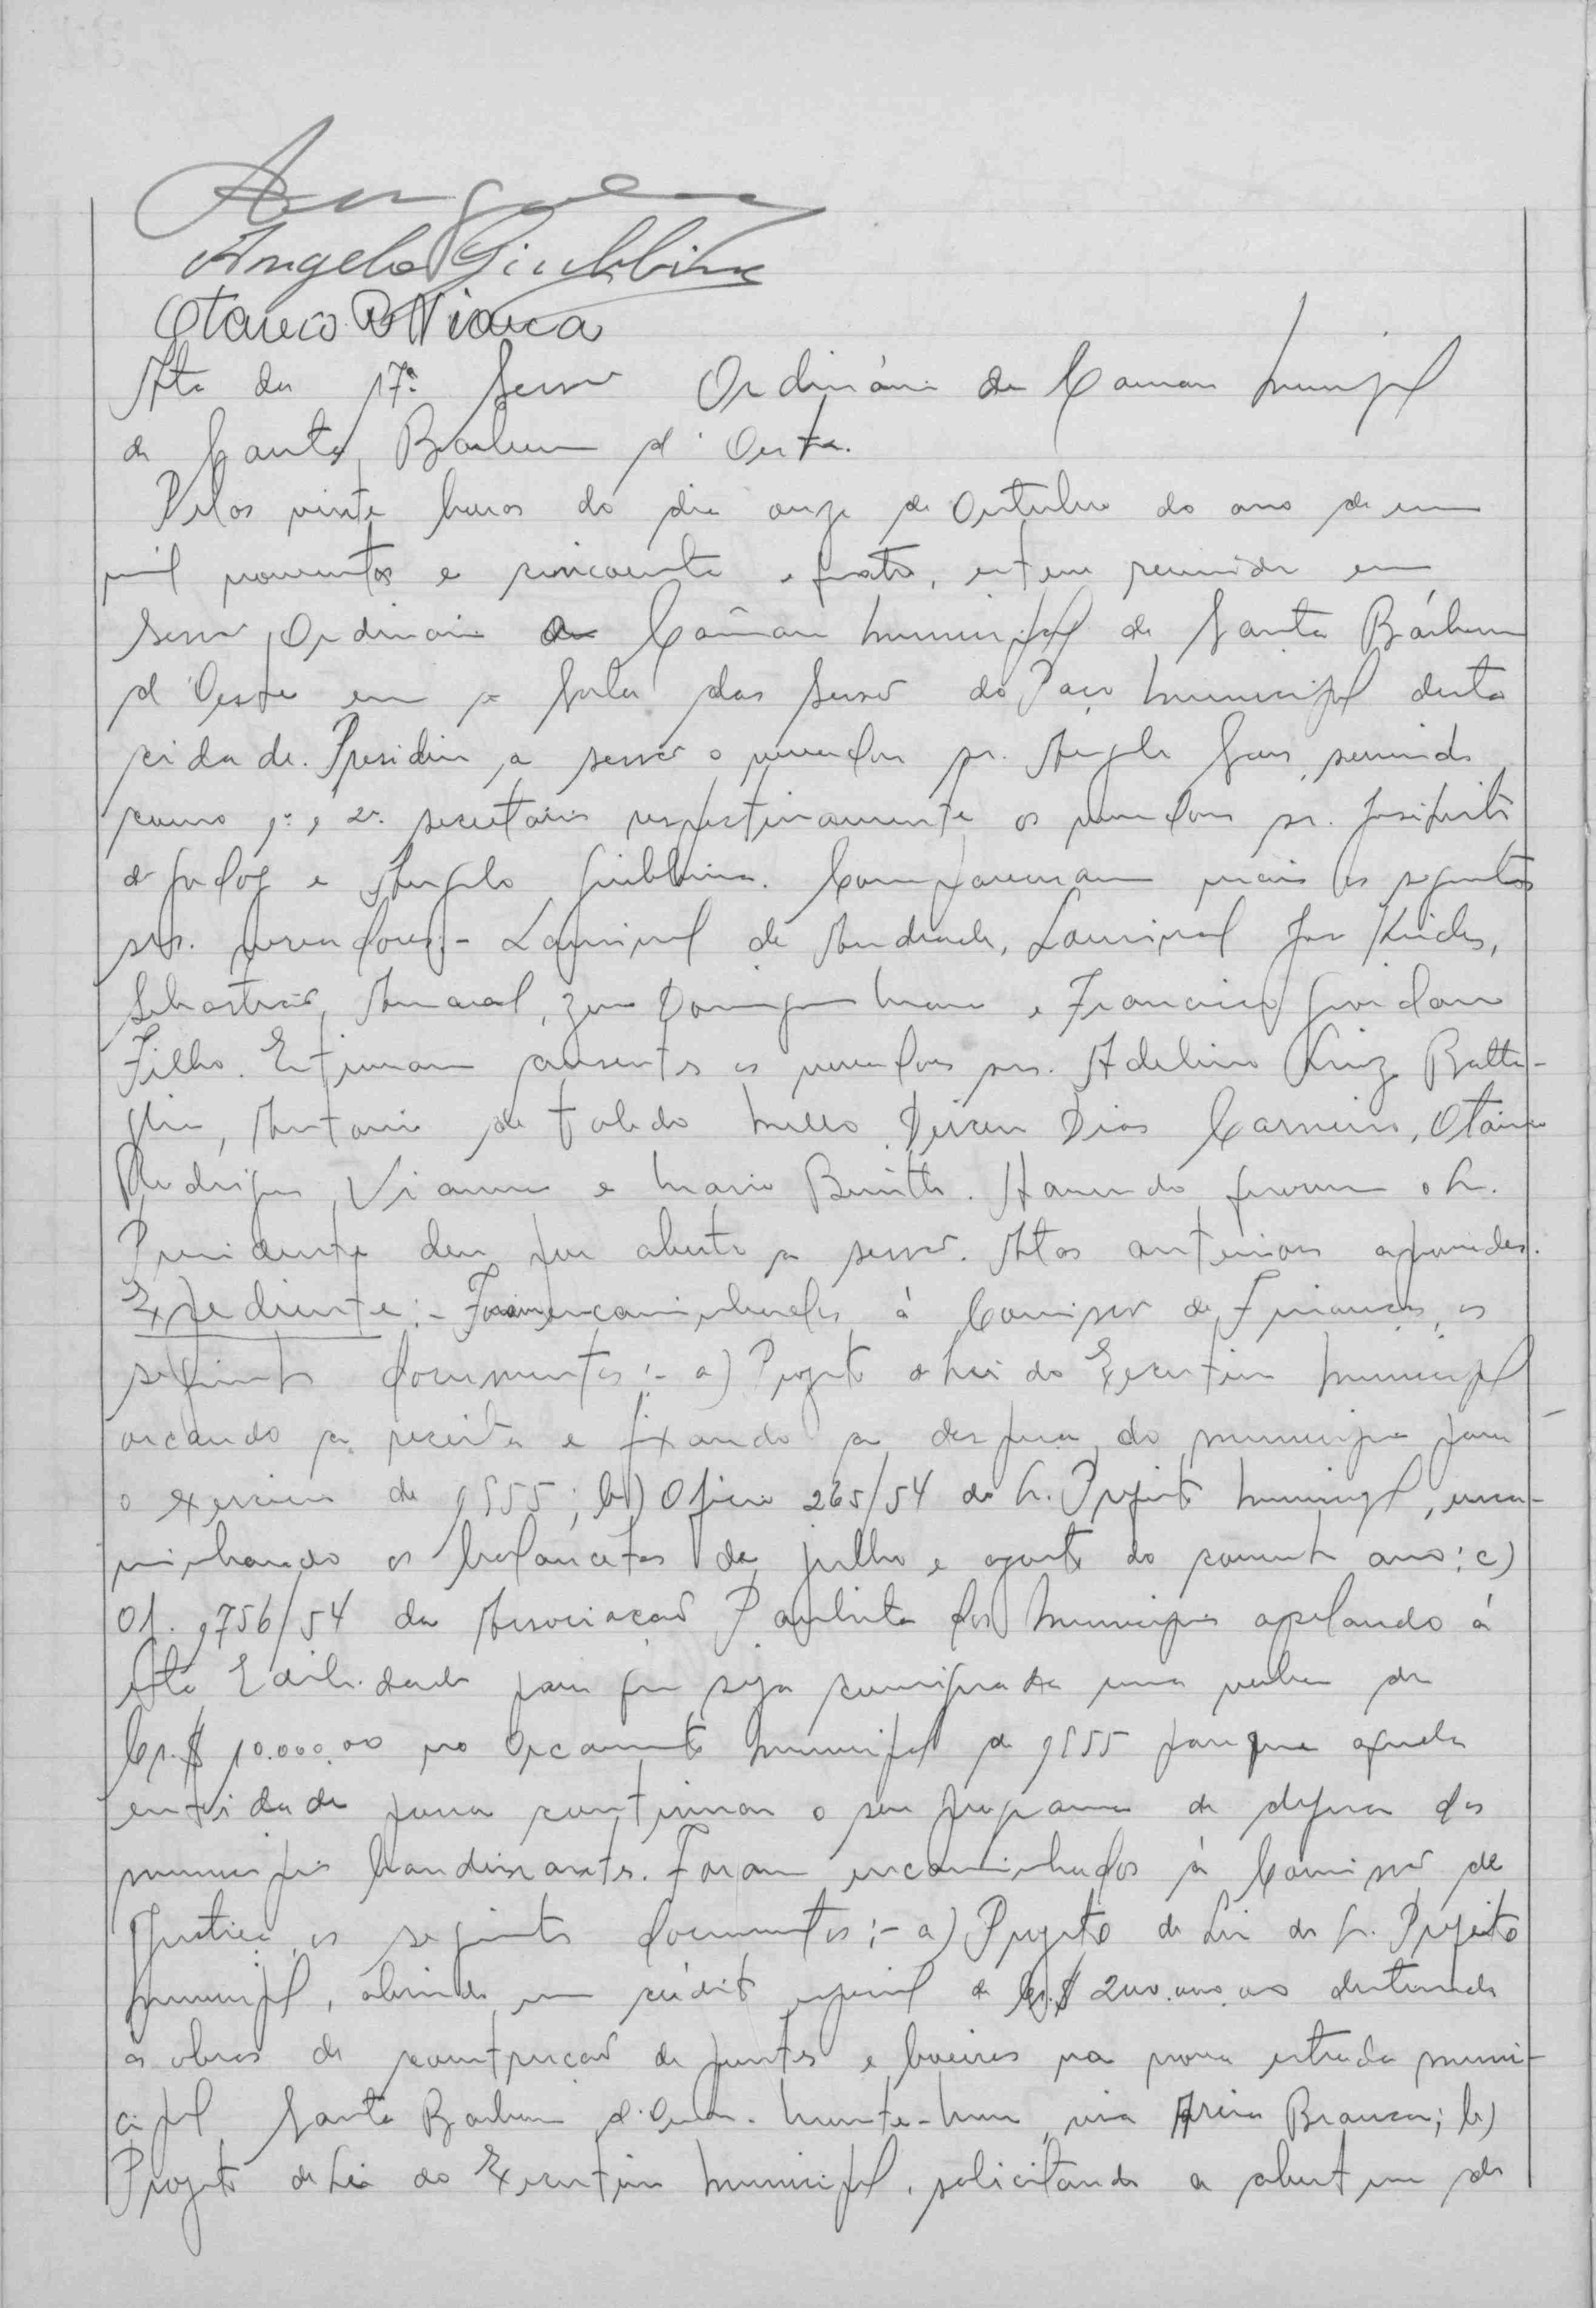 Angelo Giubbina
Ata da 17ª Sessão Ordinária da Camara Municipal
de Santa Barbara d'Oeste.
Pelas vinte horas do dia onze de Outubro do ano de um
mil novecentos e cincoenta e quatro, esteve reunida em
sessão Ordinaria a Câmara Municipal de Santa Bárbara
d'Oeste em a sala das sessões do Paço Municipal desta
cidade. Presidiu a sessão o vereador sr. Angelo Sans, servindo
como 1º e 2º secretários respectivamente os vereadores sr.
de Godoy e Angelo Giubbina. Compareceram mais os seguintes
srs. vereadores:- Laurival de Andrade, Laurival
Sebastião Amaral, Domingues e Francisco Giordano
Filho. Estiveram ausentes os vereadores srs. Adelino Batta-
glia, Antonio de Toledo Mello, Dirceu Dias Carneiro, Otávio
Rodrigues Vianna e Mario. Havendo o Sr.
Presidente deu por aberta a sessão. Atas anteriores aprovadas.
Expediente:- Foram encaminhados á Comissão de Finanças, os
seguintes documentos:- a) Projeto de Lei do Executivo Municipal
orçando a receita e fixando a despesa do municipio para
o exercicio de 1955; b) Oficio 265/54 do Sr. Prefeito Municipal, enca-
minhando os balancetes de julho e agosto do corrente ano; c)
Of. 1756/54 da Associação Paulista dos Municipios apelando á
esta Edilidade para que seja consignada uma verba de
Cr.$ 10.000,00 no Orçamento Municipal de 1955 para que aquela
entidade possa continuar o seu programa de defesa dos
municipios bandeirantes. Foram encaminhados à Comissão de
Justiça os seguintes documentos:- a) Projeto de Lei do Sr. Prefeito
Municipal, abrindo um crédito especial de Cr.$ 200.000,00 destinado
as obras de construção de pontes e boeiros na nova estrada muni-
cipal Santa Barbara d'Oeste - Monte-Mor, via Areia Branca; b)
Projeto de Lei do Executivo Municipal, solicitando a abertura de